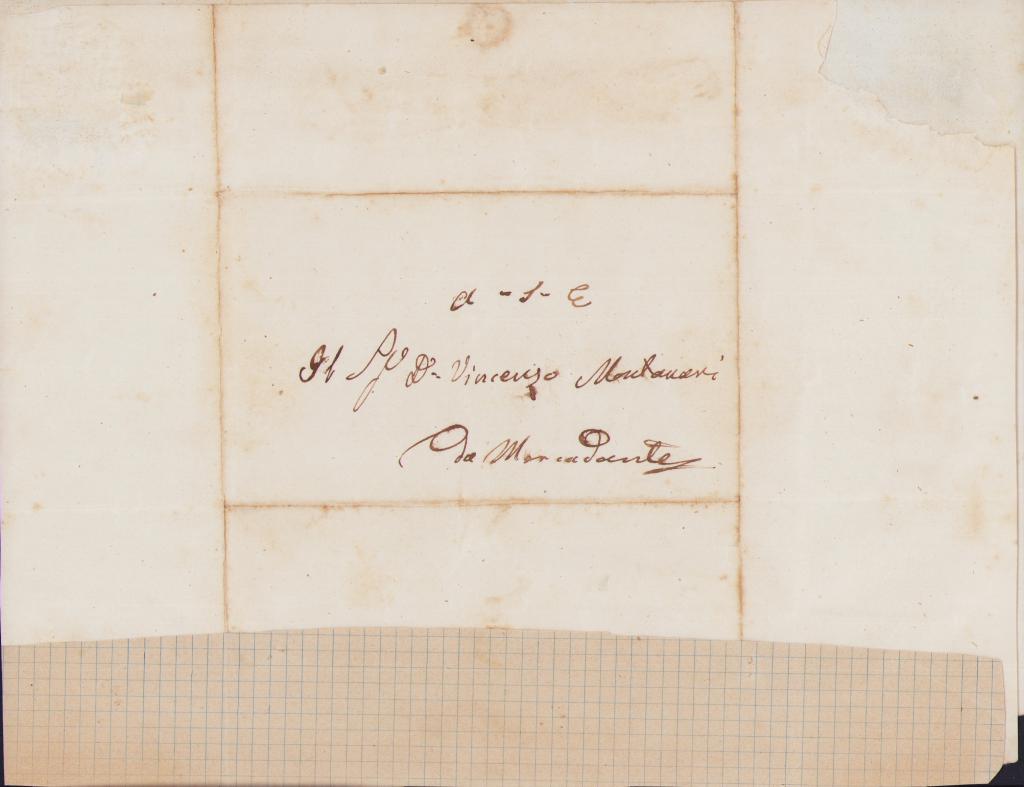 A - S - E
Il Sr. Dn. Vincenzo Montanari
Da Mercadante